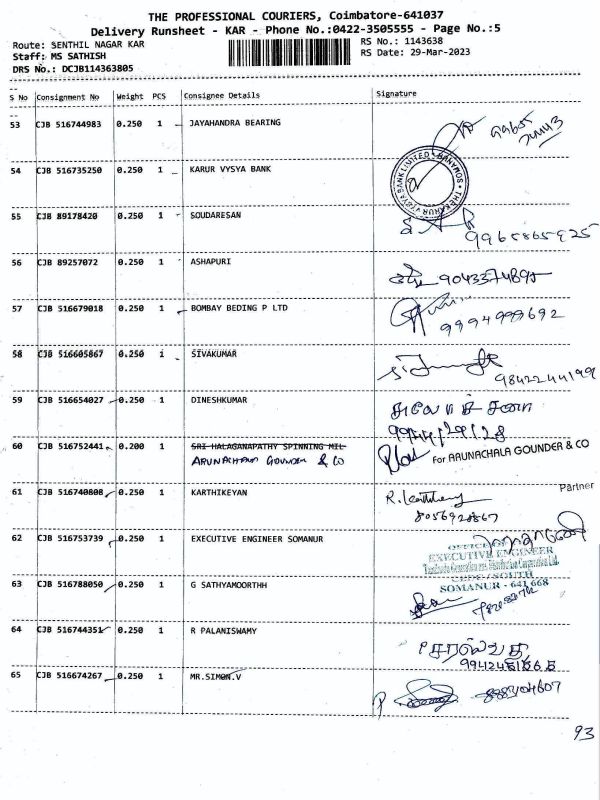 THE PROFESSIONAL COURIERS, Coimbatore-641037
Delivery Runsheet - KAR - Phone No.:0422-3505555 - Page No.:5
Route: SENTHIL NAGAR KAR
RS No.: 1143638
Staff: MS SATHISH
RS Date: 29-Mar-2023
DRS No.: DCJB114363805
S No Consignment No Weight PCS Consignee Details Signature
53 CJB 516744983 0.250 1 JAYAHANDRA BEARING
54 CJB 516735250 0.250 1 KARUR VYSYA BANK
55 CJB 89178420 0.250 1 SOUDARESAN
9965865925
56 CJB 89257072 0.250 1 ASHAPURI
9043374895
57 CJB 516679018 0.250 1 BOMBAY BEDING P LTD
9994999692
58 CJB 516605867 0.250 1 SIVAKUMAR
9842244199
59 CJB 516654027 0.250 1 DINESHKUMAR
60 CJB 516752441 0.200 1 SRI HALAGANAPATHY SPINNING MIL
ARUNACHALA GOUNDER & CO
For ARUNACHALA GOUNDER & CO
Partner
61 CJB 516740808 0.250 1 KARTHIKEYAN
8056928867
62 CJB 516753739 0.250 1 EXECUTIVE ENGINEER SOMANUR
OFFICE OF
EXECUTIVE ENGINEER
SOMANUR - 641 668
63 CJB 516788050 0.250 1 G SATHYAMOORTHH
64 CJB 516744351 0.250 1 R PALANISWAMY
65 CJB 516674267 0.250 1 MR.SIMON.V
93